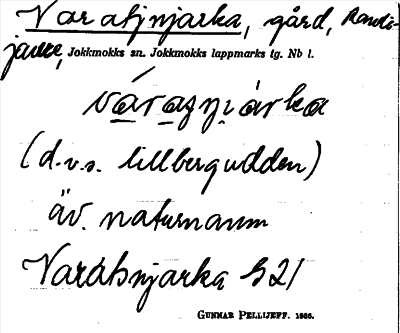 Varatjnjarka, gård, Randi-
jaure, Jokkmokks sn. Jokkmokks lappmarks tg. Nb l.
várasńárka
(d.v.s. lillbergudden)
äv. naturnamn
Varátsnjarka S 21
GUNNAR PELLIJEFF. 1965.